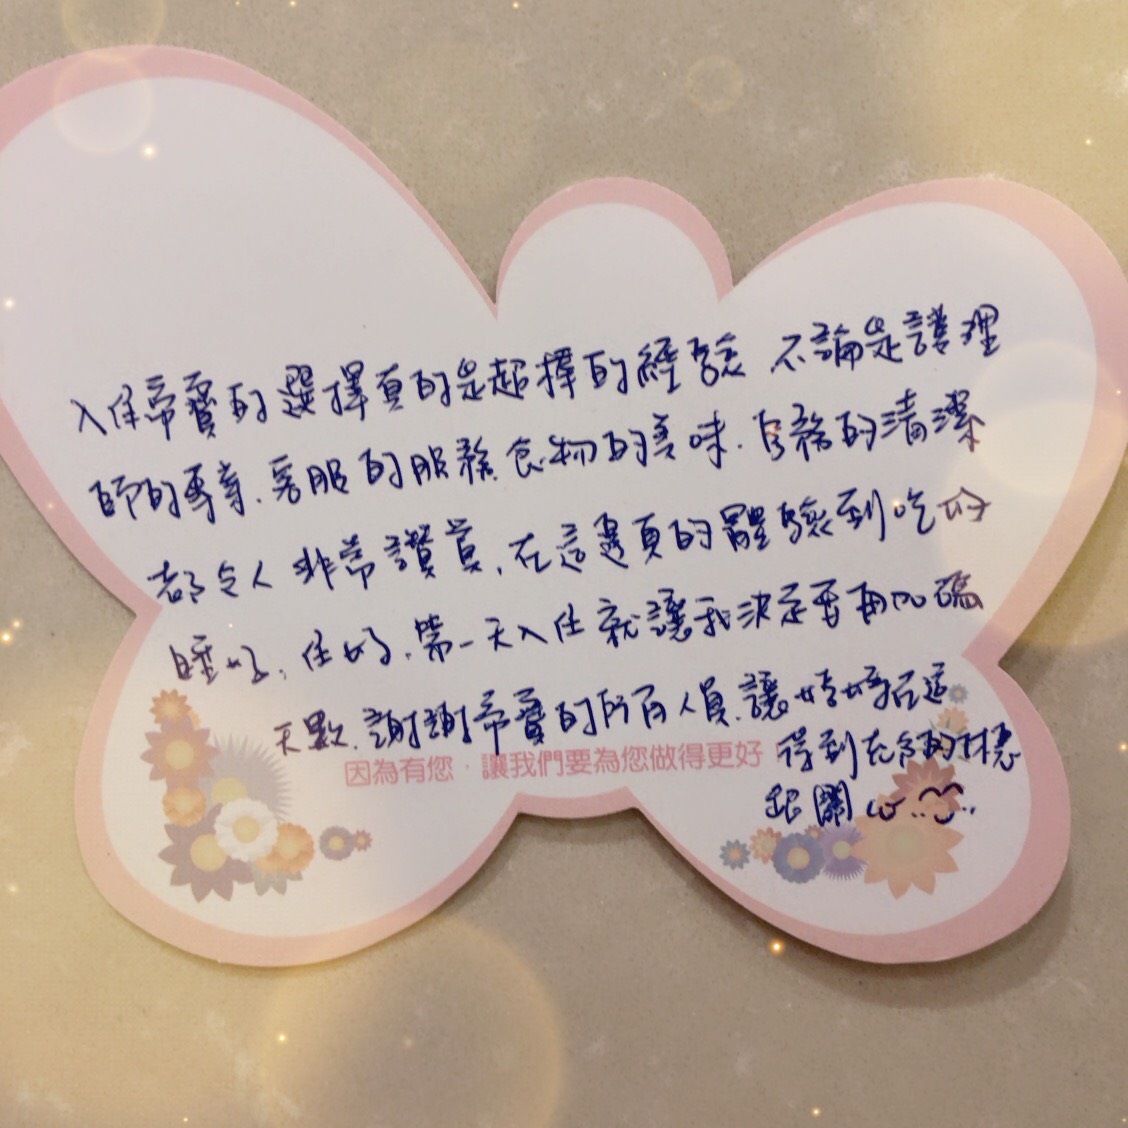 入住帝寶的選擇真的是超擇的經驗 不論是護理
師的專業、客服的服務、食物的美味、房務的清潔
都令人非常讚賞，在這邊真的體驗到吃好
睡好，住好，第一天入住就讓我決定要再加碼
天數，謝謝帝寶的所有人員，讓媽媽在這
得到充分的休息
很開心
因為有您，讓我們要為您做得更好